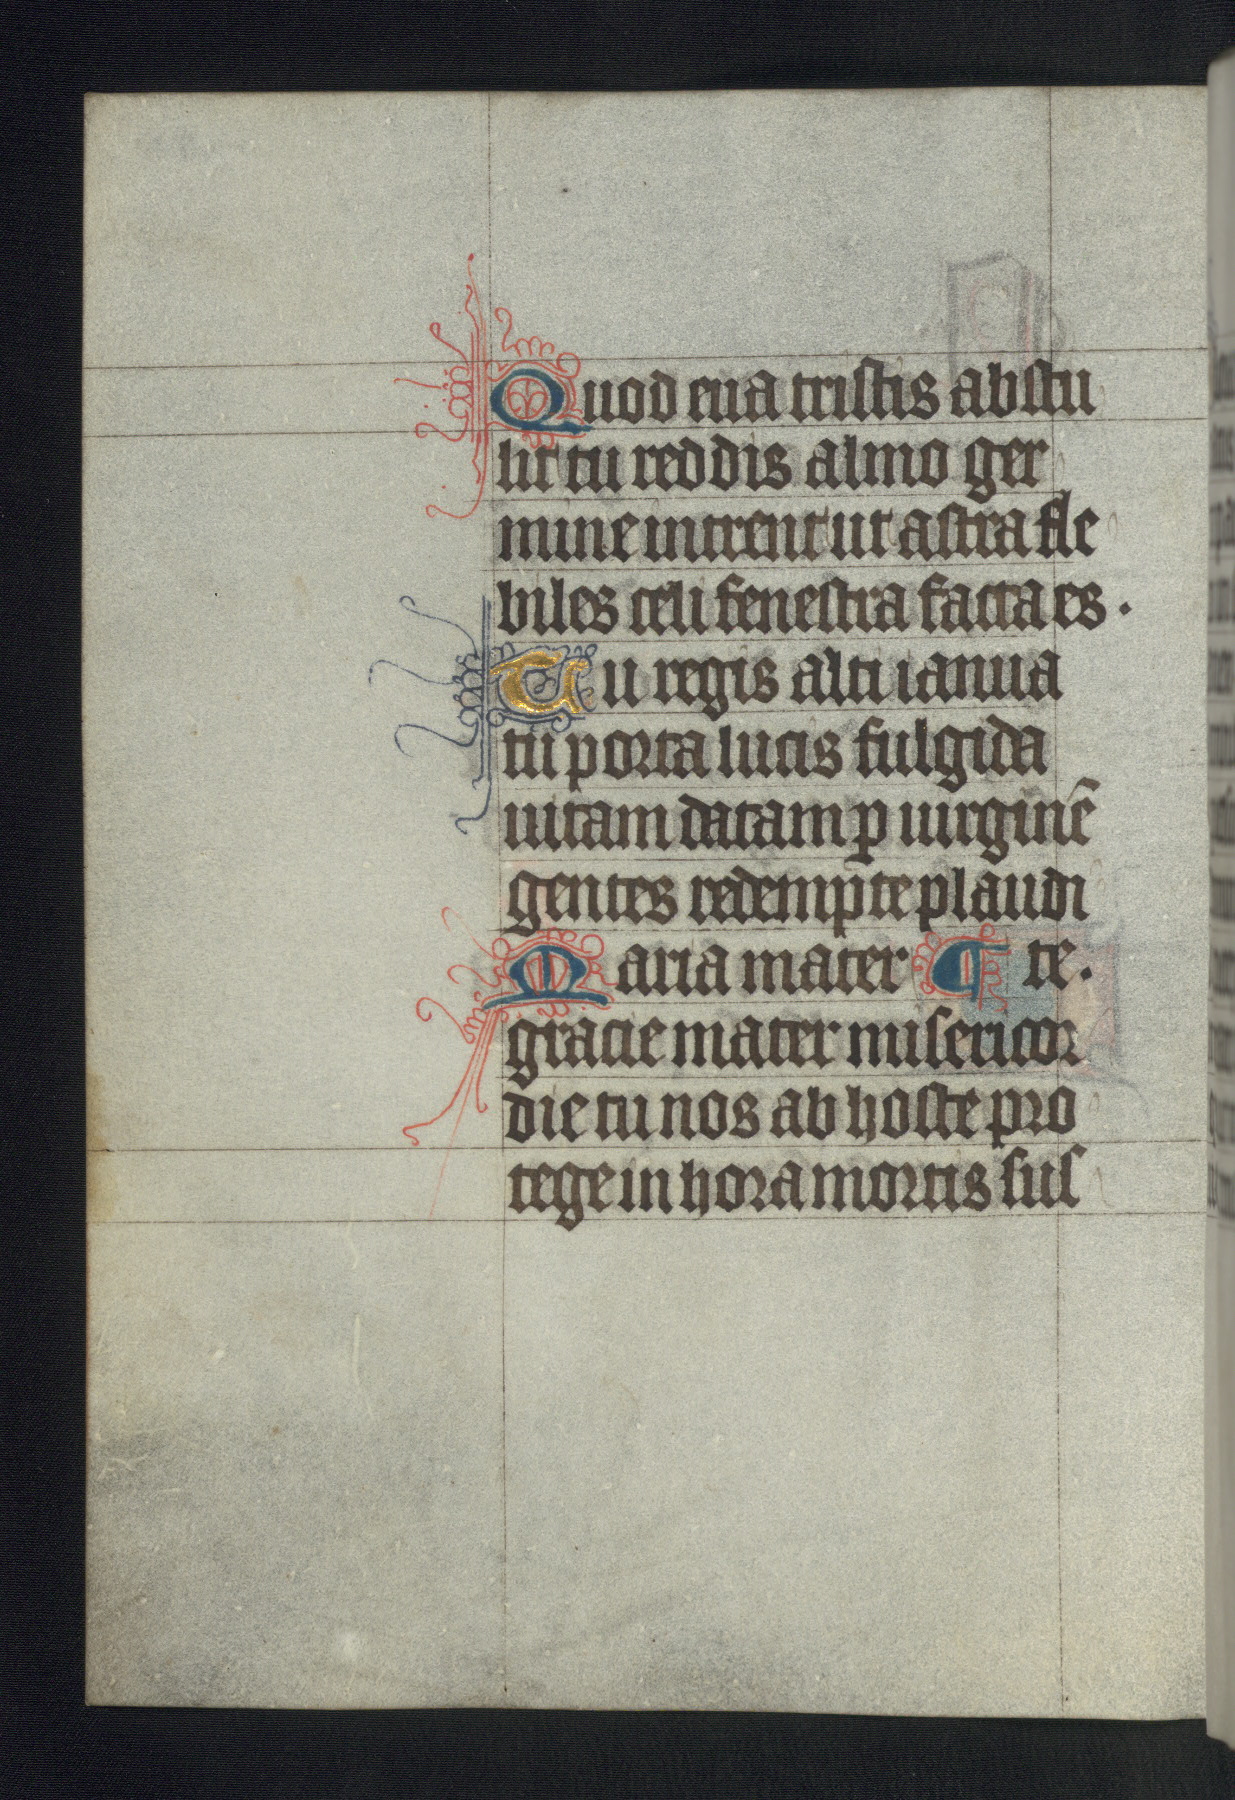 Quod eua tristis abstu
lit tu reddis almo ger
mine intrent ut astra fle
biles celi fenestra facta es.
Tu regis alti ianua
tu porta lucis fulgida
uitam datam ꝑ uirginē
gentes redemp̄te plaudi
Maria mater ¶ te.
gracie mater misericor
die tu nos ab hoste pro
tege in hora mortis sus